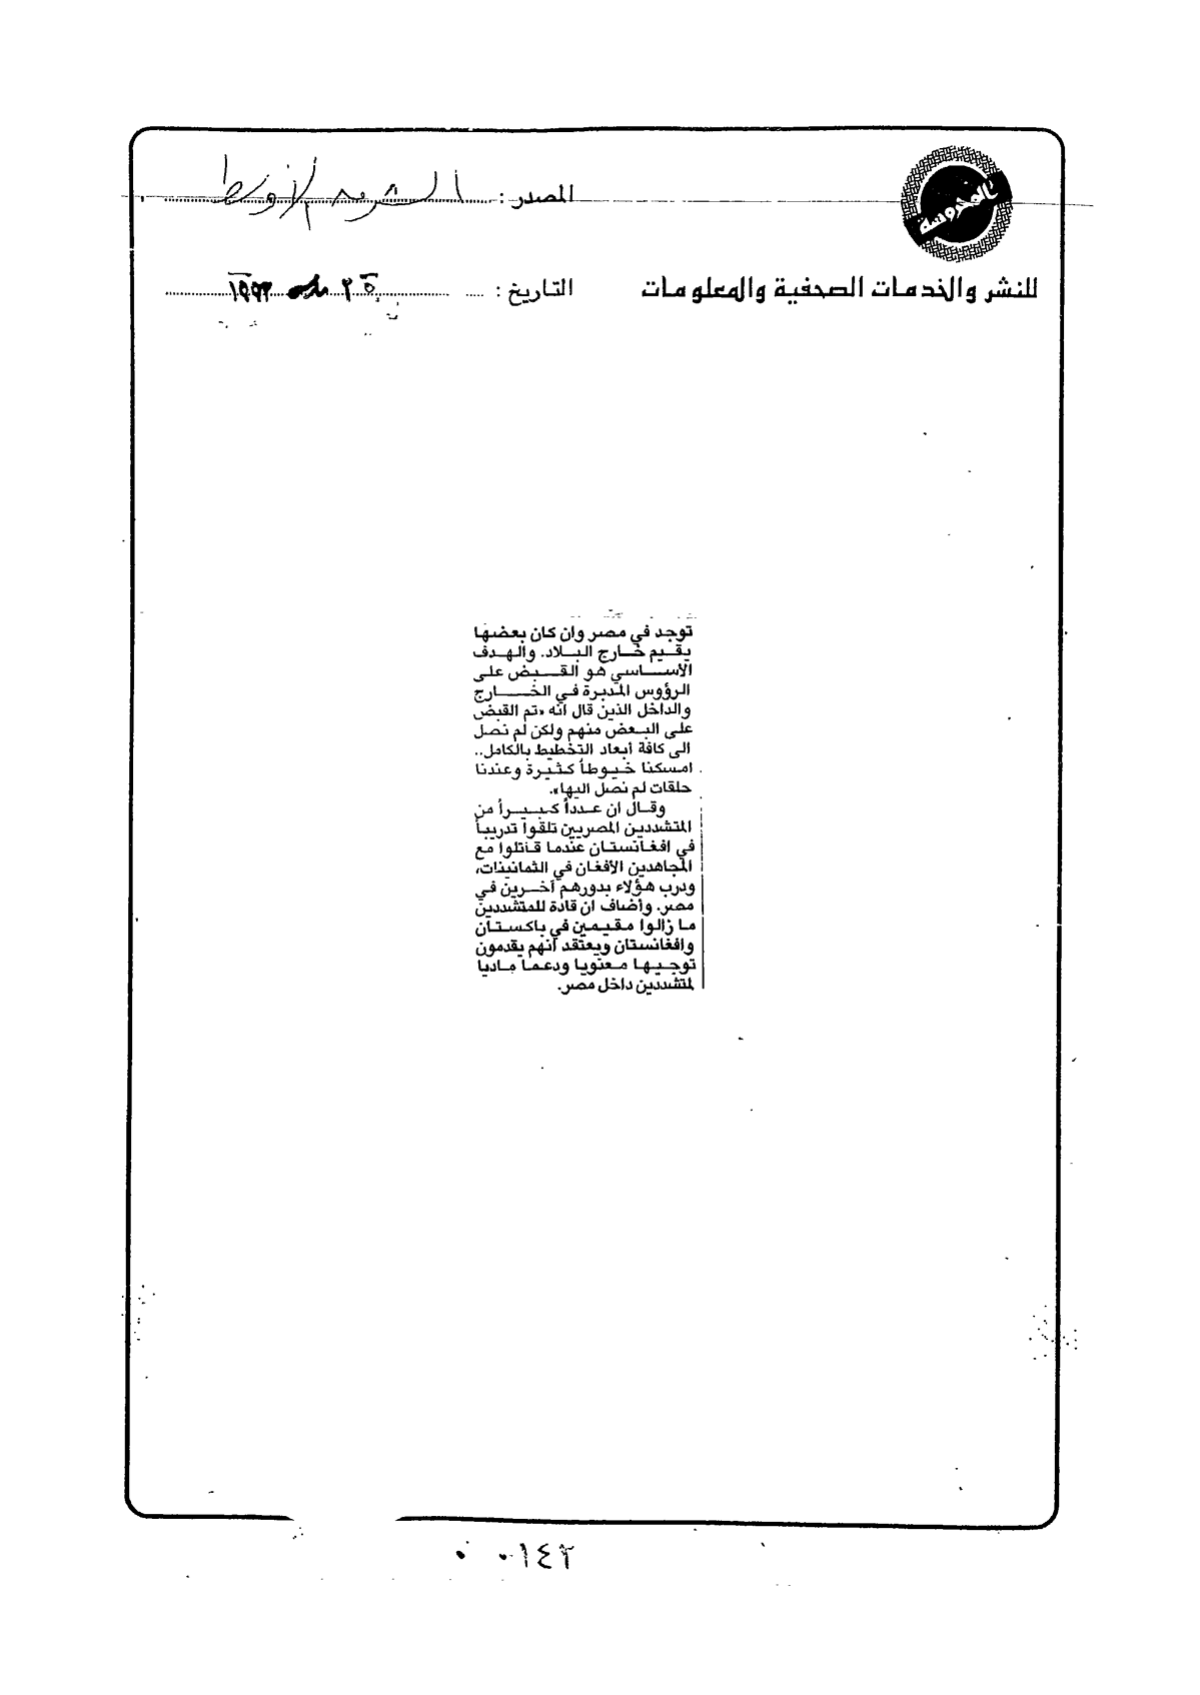 المحروسة
المصدر : الشرق الأوسط
للنشر والخدمات الصحفية والمعلومات
التاريخ : ٢٥ مايو ١٩٩٣
توجد في مصر وان كان بعضها
يقيم خارج البلاد. والهدف
الأساسي هو القبض على
الرؤوس المدبرة في الخارج
والداخل الذين قال انه «تم القبض
على البعض منهم ولكن لم نصل
الى كافة أبعاد التخطيط بالكامل..
امسكنا خيوطاً كثيرة وعندنا
حلقات لم نصل اليها».
وقال ان عدداً كبيراً من
المتشددين المصريين تلقوا تدريباً
في افغانستان عندما قاتلوا مع
المجاهدين الأفغان في الثمانينات،
ودرب هؤلاء بدورهم آخرين في
مصر. وأضاف ان قادة للمتشددين
ما زالوا مقيمين في باكستان
وافغانستان ويعتقد انهم يقدمون
توجيها معنويا ودعما ماديا
لمتشددين داخل مصر.
٠٠١٤٢